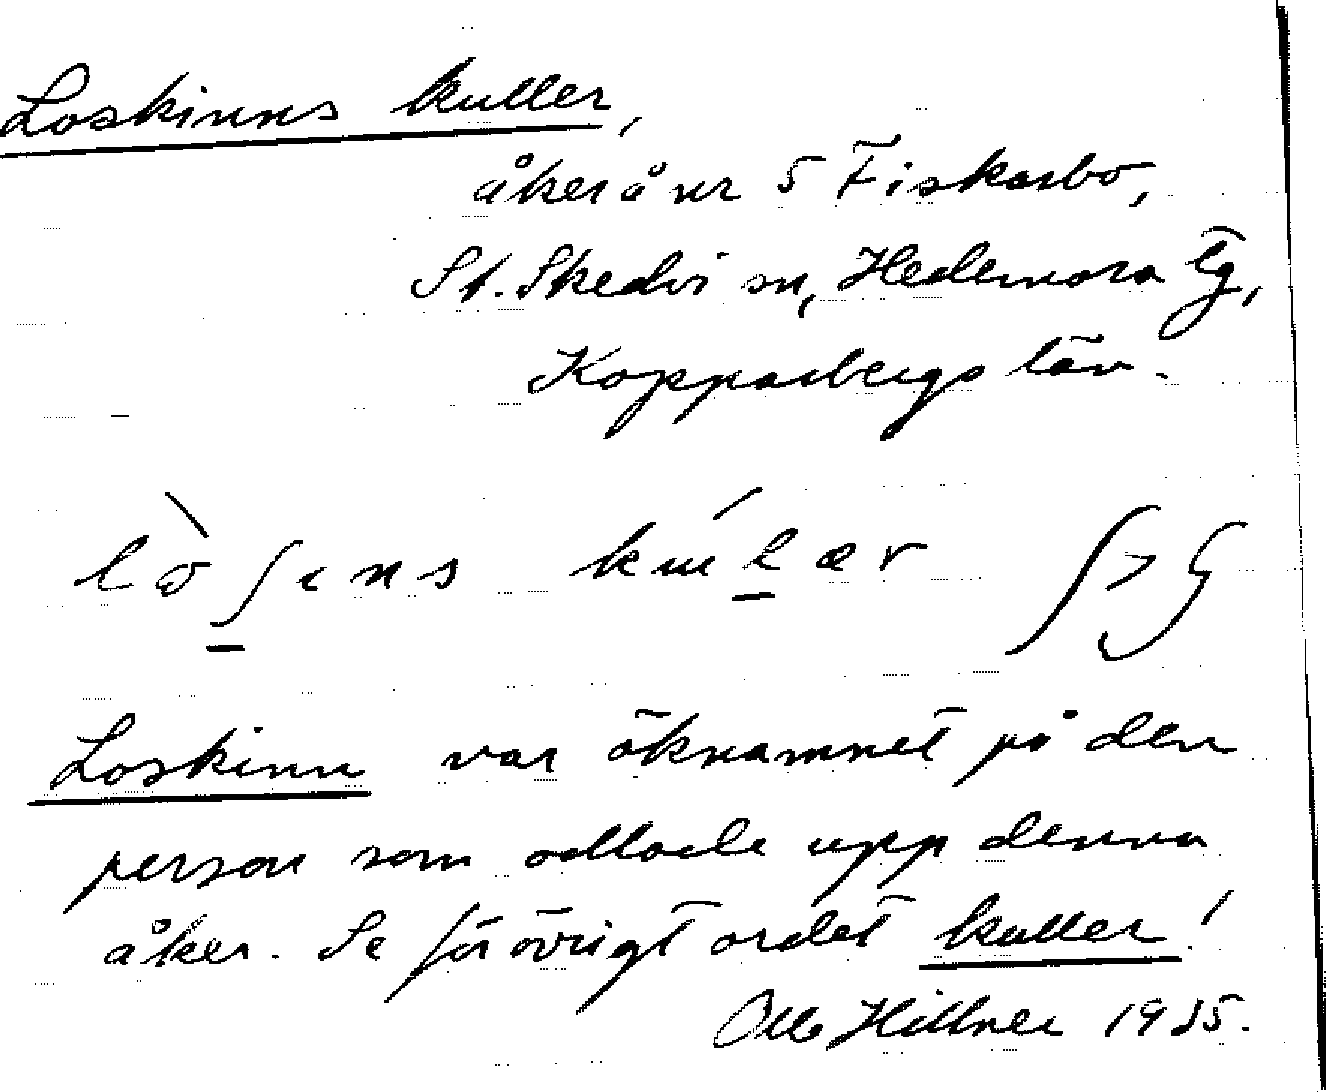 Loskinns kuller,
åker å nr 5 Fiskarbo,
St. Skedvi sn, Hedemora tg,
Kopparbergs län.
kuller
Loskinn var öknamnet på den
person som odlade upp denna
åker. Se förövrigt ordet kuller!
Olle Hillner 1935.